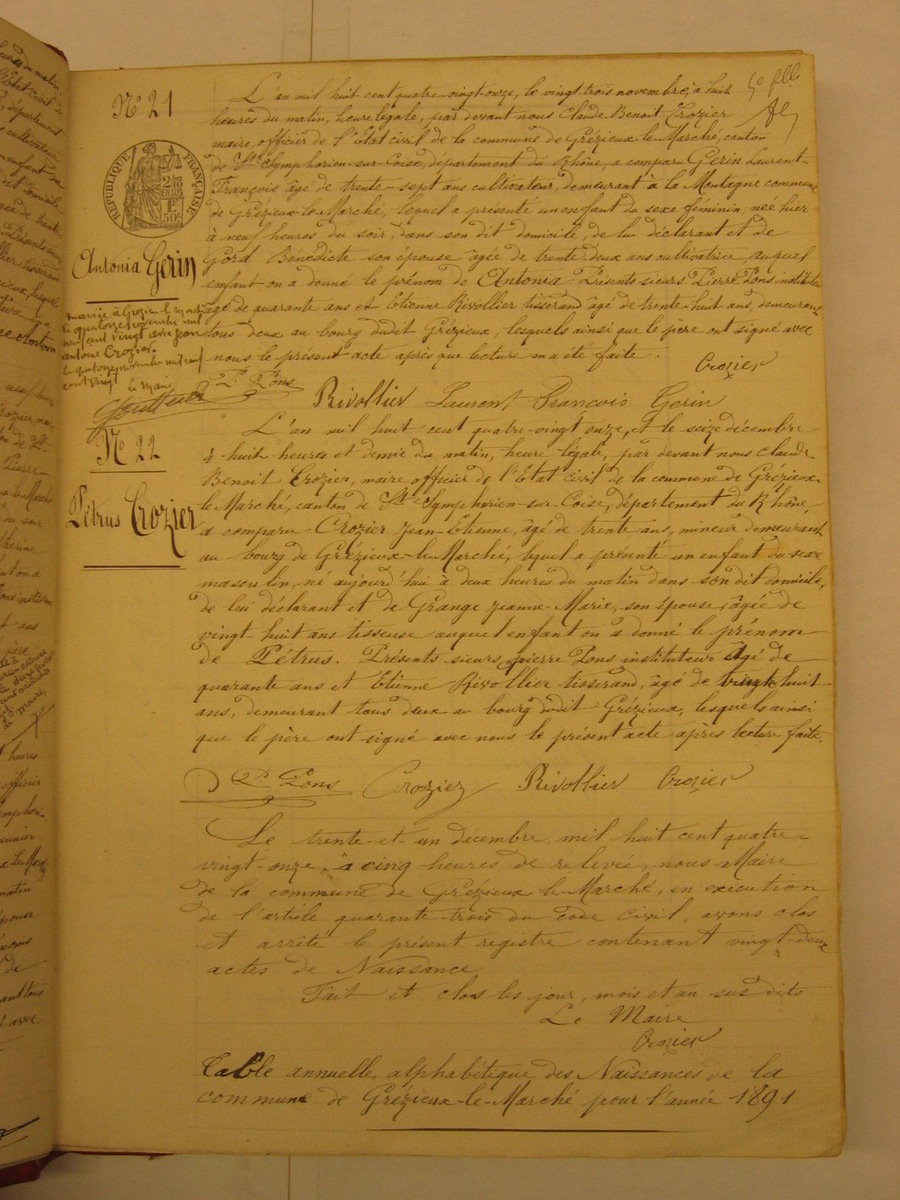 N° 21
5e flle
RÉPUBLIQUE FRANÇAISE
2/10 EN SUS
1F 50c
Antonia Gerin
mariée à Grézieu le marché
le quatorze novembre mil
neuf cent vingt avec Jean
antoine Crozier
neuf
cent vingt
le maire
L'an mil huit cent quatre-vingt-onze, le vingt trois novembre, à huit
heures du matin, heure légale, par devant nous Claude Benoit Crozier
maire, officier de l'Etat civil de la commune de Grézieux-le-Marché, canton
de St Symphorien-sur-Coise, département du Rhône, a comparu Gerin Laurent-
François âgé de trente-sept ans cultivateur, demeurant à la Montagne commune
de Grézieux-le-Marché, lequel a présenté un enfant du sexe féminin, née hier
à neuf heures du soir, dans son dit domicile, de lui déclarant et de
Gord Bénédicte son épouse âgée de trente-deux ans cultivatrice, auquel
enfant on a donné le prénom de Antonia. Présents sieurs Pierre Pons instituteur
âgé de quarante ans et Etienne Rivollier tisserand âgé de trente-huit ans, demeurant
tous deux au bourg dudit Grézieux, lesquels ainsi que le père ont signé avec
nous le présent acte après que lecture en a été faite.
Crozier
P. Pons
Rivollier Laurent François Gerin
N° 22
Pétrus Crozier
L'an mil huit cent quatre-vingt onze, et le seize décembre
à huit heures et demie du matin, heure légale, par devant nous Claude-
Benoit Crozier, maire officier de l'Etat civil de la commune de Grézieux-
le-Marché, canton de St Symphorien-sur-Coise, département du Rhône,
a comparu Crozier Jean-Etienne, âgé de trente ans, mineur demeurant
au bourg de Grézieux-le-Marché, lequel a présenté un enfant du sexe
masculin, né aujourd'hui à deux heures du matin dans son dit domicile,
de lui déclarant et de Grange Jeanne-Marie, son épouse, âgée de
vingt huit ans tisseuse auquel enfant on a donné le prénom
de Pétrus. Présents sieurs Pierre Pons instituteur âgé de
quarante ans et Etienne Rivollier tisserand, âgé de huit
ans, demeurant tous deux au bourg dudit Grézieux, lesquels ainsi
que le père ont signé avec nous le présent acte après lecture faite.
P. Pons Crozier Rivollier Crozier
Le trente-et-un décembre mil huit cent quatre-
vingt-onze, à cinq heures de relevée, nous Maire
de la commune de Grézieux le-Marché, en exécution
de l'article quarante-trois du Code Civil, avons clos
et arrêté le présent registre contenant vingt-deux
actes de Naissance
Fait et clos les jour, mois et an sus dits
Le Maire
Crozier
Table annuelle, alphabétique des Naissances de la
commune de Grézieux-le-Marché pour l'année 1891